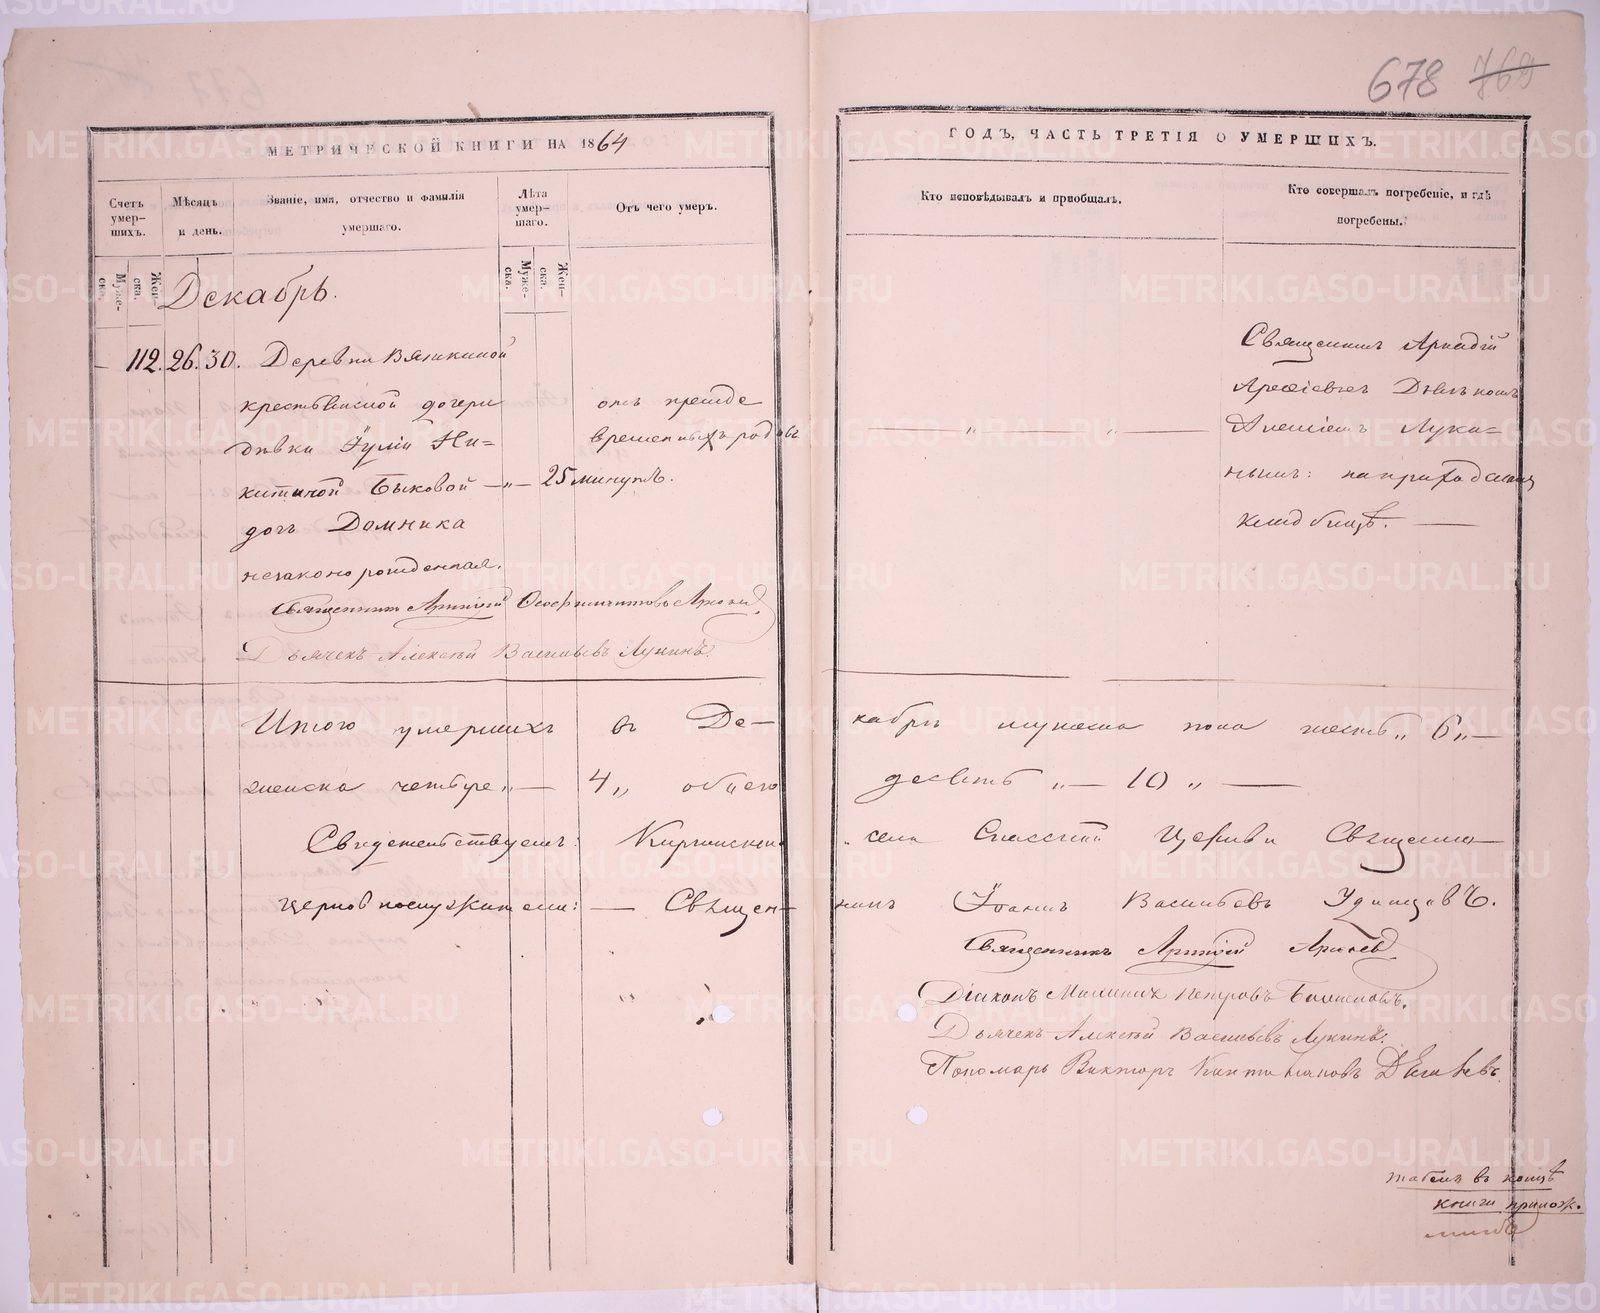 678 769
МЕТРИЧЕСКОЙ КНИГИ НА 1864
ГОДЪ, ЧАСТЬ ТРЕТІЯ О УМЕРШИХЪ.
Счетъ умер-шихъ.
Мѣсяцъ и день.
Званіе, имя, отчество и фамилія умершаго.
Лѣта умер-шаго.
Отъ чего умеръ.
Кто исповѣдывалъ и пріобщалъ.
Кто совершалъ погребеніе, и гдѣ погребены.
Муже-ска.
Жен-ска.
Муже-ска.
Жен-ска.
Декабрь.
112. 26. 30. Деревни Вяткиной
крестьянской дочери
дѣвки Іуліи Ни-
китиной Быковой — „ — 25 минутъ.
дочь Домника
незаконорожденная.
отъ прежде
временныхъ родовъ
Священникъ Аркадій
Арефіевъ съ Дьячкомъ
Алексіемъ Луки-
нымъ: на приходскомъ
кладбищѣ.
Священникъ
Дьячекъ Алексѣй Васильевъ Лукинъ.
Итого умершихъ въ Де-
кабрѣ мужеска пола шесть „ 6 „ —
женска четыре „ — 4 „ обоего
десять „ — 10 „ —
Свидетельствуемъ: Киргинскаго
села Спасской Церкви Священно
церковнослужители: — Священ-
никъ Іоаннъ Васильевъ Удинцовъ.
Священникъ
Діаконъ Петровъ
Дьячекъ Алексѣй Васильевъ Лукинъ.
Пономарь Викторъ
табель въ концѣ
книги прилож.
METRIKI.GASO-URAL.RU